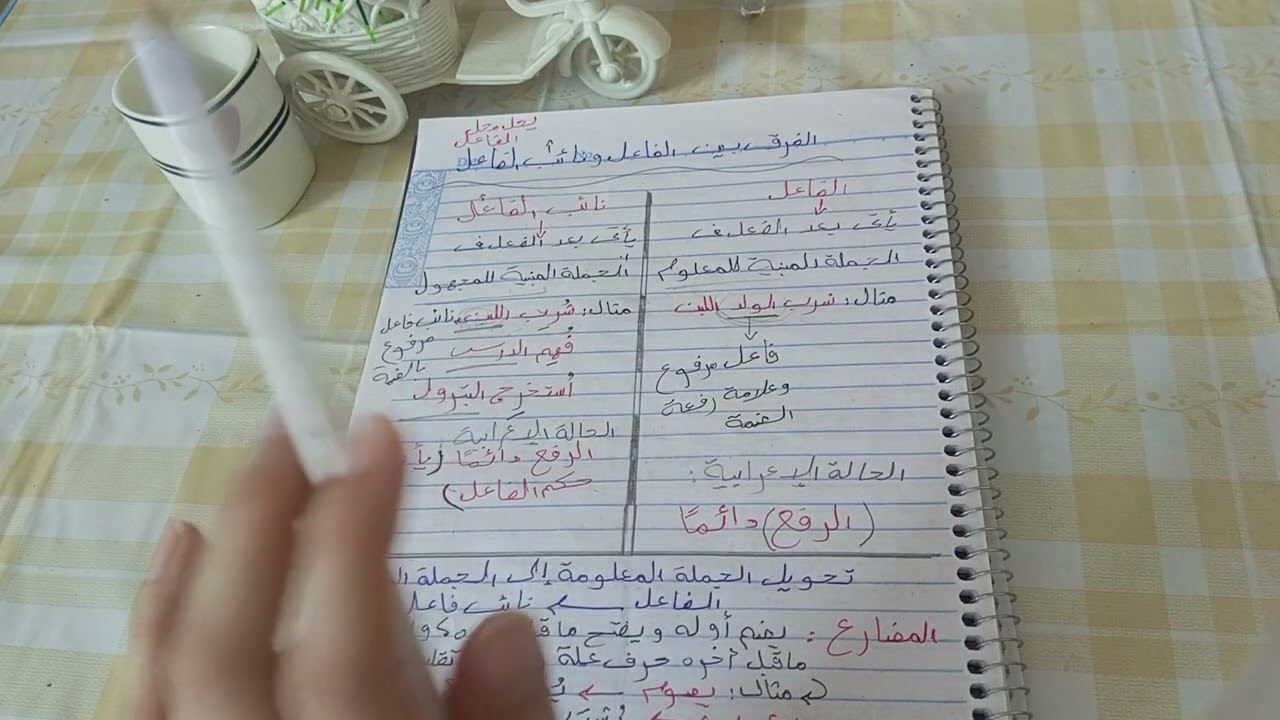 يحل محل
الفاعل
الفرق بين الفاعل ونائب الفاعل
الفاعل
يأتي بعد الفعل في
الجملة المبنية للمعلوم
مثال: شرب الولد اللبن
فاعل مرفوع
وعلامة رفعة
الضمة
الحالة الإعرابية:
(الرفع) دائمًا
نائب الفاعل
يأتي بعد الفعل في
الجملة المبنية للمجهول
مثال: شُرِب اللبن نائب فاعل
مرفوع
بالضمة
فُهِم الدرس
اُستخرج البترول
الحالة الإعرابية
الرفع دائمًا
حكم الفاعل)
تحويل الجملة المعلومة إلى الجملة
الفاعل ← نائب فاعل
المضارع: يضم أوله ويفتح ما
ماقبل أخره حرف علة
مثال: يصوم ←